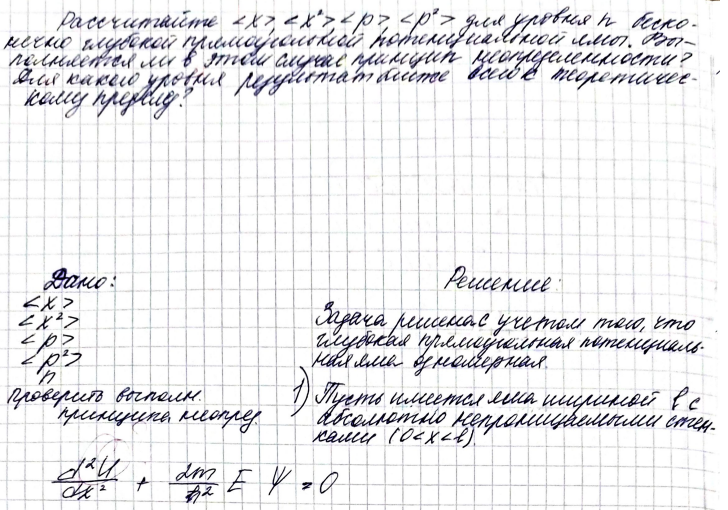 Рассчитайте <x>, <x²> <p> <p²> для уровня n беско-
нечно глубокой прямоугольной потенциальной ямы. Вы-
полняется ли в этом случае принцип неопределенности?
Для какого уровня результат ближе всего к теоретичес-
кому пределу?
Дано:
<x>
<x²>
<p>
<p²>
n
проверить выполн.
принципа неопред.
Решение:
Задача решена с учетом того, что
глубокая прямоугольная потенциаль-
ная яма одномерная.
1) Пусть имеется яма шириной l с
абсолютно непроницаемыми стен-
ками (0<x<l)
d²U/dx² + 2m/ħ² E Ψ = 0